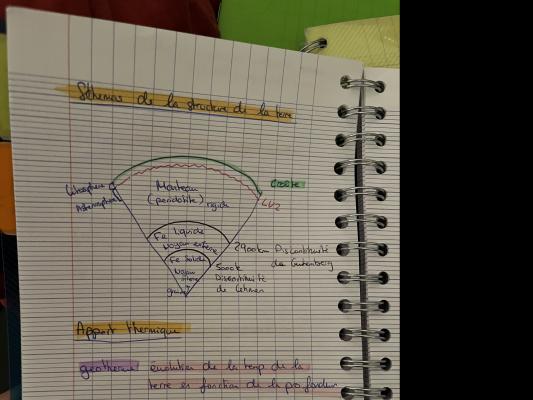 Schémas de la structure de la terre
Croûte
Lithosphère
Manteau
(péridotite) rigide
LVZ
Asthénosphère
Fe liquide
Noyau externe
2900km Discontinuité
de Gutenberg
Fe solide
Noyau
interne
5000k
Discontinuité
de Lehman
Apport thermique
évolution de la temp de la
terre en fonction de la profondeur